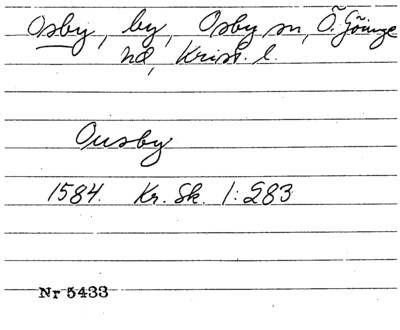 Osby, by, Osby sn, Ö. Göinge
hd, Krist. l.
Ousby
1584. Kr. Sk. 1:283
Nr 5433